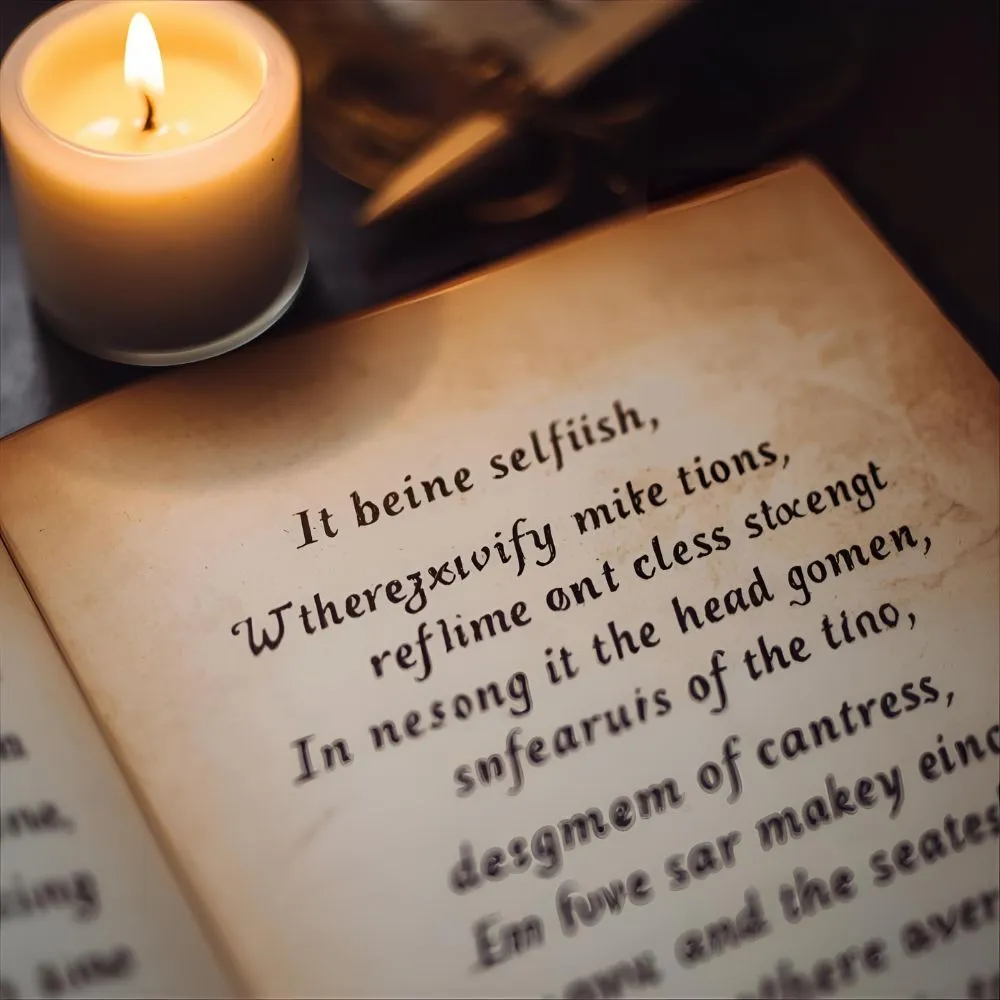 It beine selfiish,
Wtherezxwify mike tions,
reflime ont cless stocengt
In nesong it the head gomen,
snfearuis of the tino,
desgmem of cantress,
Em fuve sar makey einc
and the seates
there aver